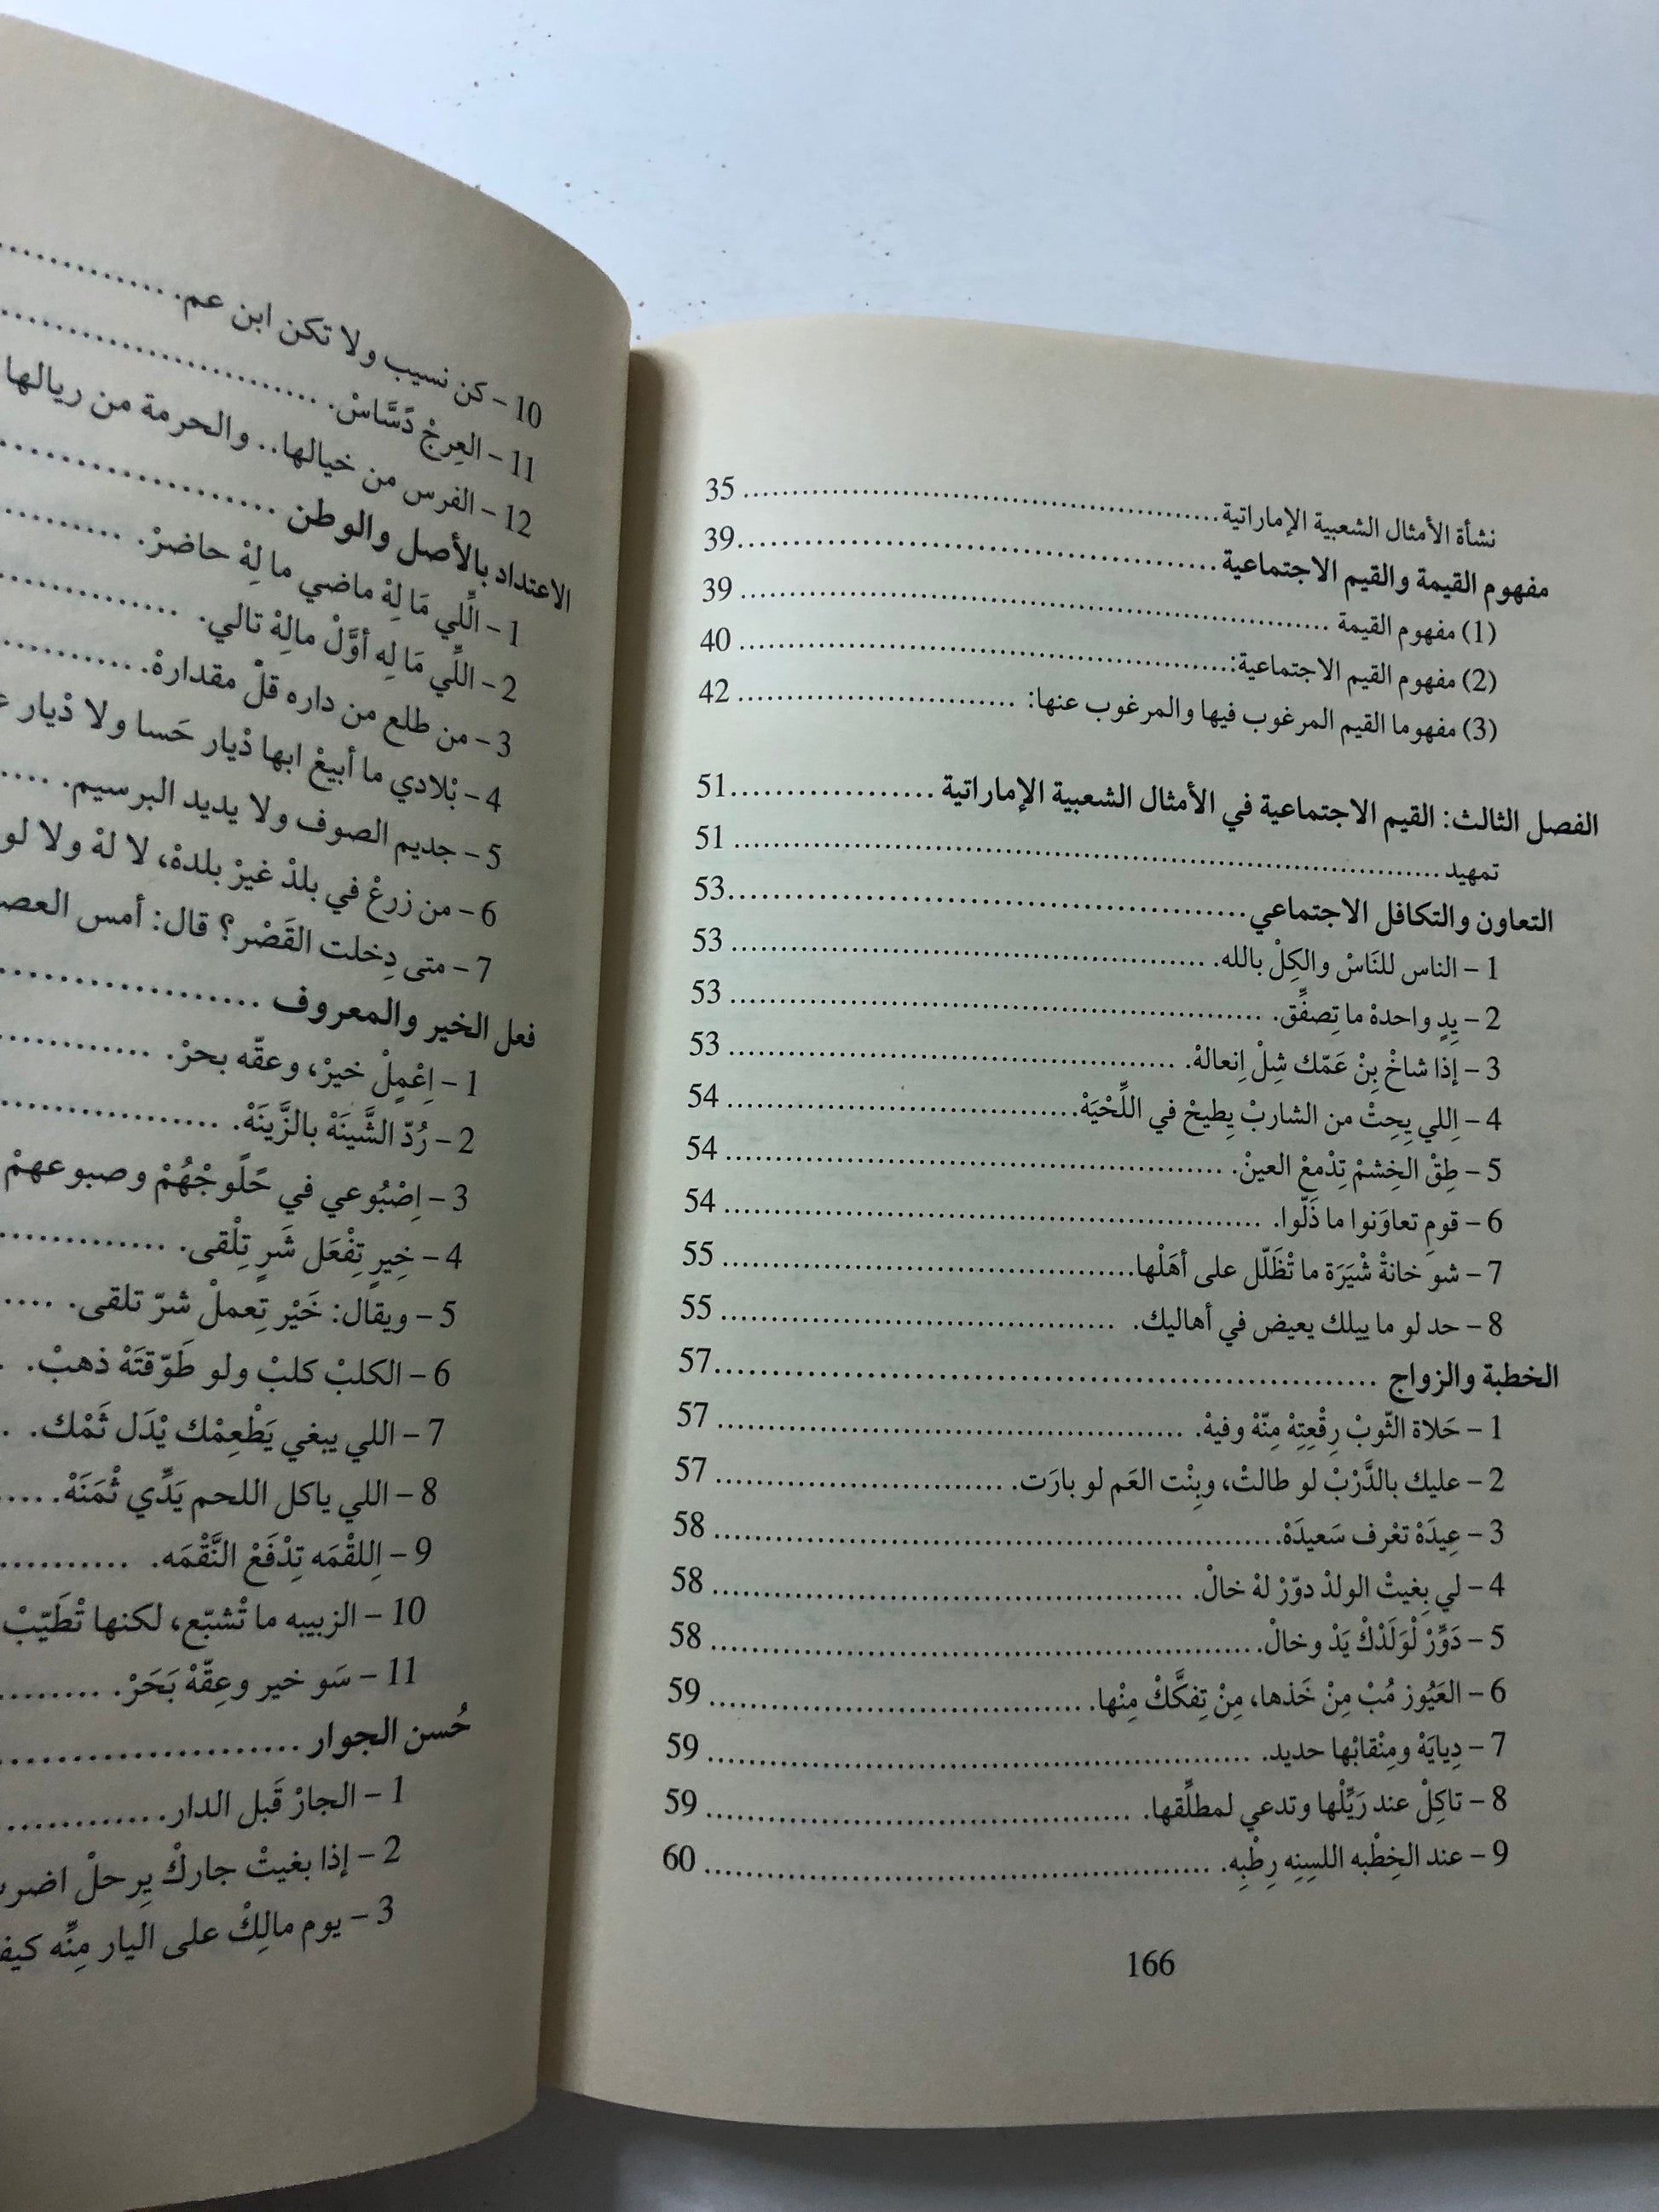 نشأة الأمثال الشعبية الإماراتية ........ 35
مفهوم القيمة والقيم الاجتماعية ........ 39
(1) مفهوم القيمة ........ 39
(2) مفهوم القيم الاجتماعية: ........ 40
(3) مفهوما القيم المرغوب فيها والمرغوب عنها: ........ 42
الفصل الثالث: القيم الاجتماعية في الأمثال الشعبية الإماراتية ........ 51
تمهيد ........ 51
التعاون والتكافل الاجتماعي ........ 53
1 – الناس للنَاسْ والكِلْ بالله. ........ 53
2 – يِدٍ واحدهْ ما تِصفِّق. ........ 53
3 – إذا شاخْ بِنْ عَمّك شِلْ اِنعالهْ. ........ 53
4 – اِللي يِحِتْ من الشاربْ يِطيحْ في اللِّحْيَهْ. ........ 54
5 – طِقْ الخِشمْ تِدْمعْ العينْ. ........ 54
6 – قومٍ تعاوَنوا ما ذَلّوا. ........ 54
7 – شو خانةْ شْيَرَة ما تْظَلّل على أهَلْها. ........ 55
8 – حد لو ما ييلك يعيض في أهاليك. ........ 55
الخطبة والزواج ........ 57
1 – حَلاة الثّوبْ رِقْعِتِهْ مِنّهْ وفيهْ. ........ 57
2 – عليك بالدَّرْبْ لو طالتْ، وبِنْت العَم لو بارَت. ........ 57
3 – عِيدَهْ تعْرف سَعيدَهْ. ........ 58
4 – لي بِغيتْ الولدْ دوّرْ لهْ خالْ. ........ 58
5 – دَوِّرْ لْوَلَدْكْ يَدْ وخالْ. ........ 58
6 – العَيُوز مُبْ مِنْ خَذها، مِنْ تِفكَّكْ مِنْها. ........ 59
7 – دِيايَهْ ومِنْقابْها حديد. ........ 59
8 – تاكِلْ عند رَيِّلْها وتدعي لمطلِّقها. ........ 59
9 – عند الخِطْبه اللسِنِه رِطْبِه. ........ 60
166
10 – كن نسيب ولا تكن ابن عم. ........
11 – العِرجْ دَسَّاسْ. ........
12 – الفرس من خيالها.. والحرمة من ريالها
الاعتداد بالأصل والوطن ........
1 – الّلي مَا لِهْ ماضي ما لِهْ حاضرْ. ........
2 – اللّي مَا لِه أوَّلْ مالِهْ تالي. ........
3 – من طلع من داره قلْ مقدارهْ. ........
4 – بْلادي ما أبيعْ ابها دْيار حَسا ولا دْيار
5 – جديم الصوف ولا يديد البرسيم. ........
6 – من زرعْ في بلدْ غيرْ بلدهْ، لا لهْ ولا
7 – متى دِخلت القَصْر؟ قال: أمس
فعل الخير والمعروف ........
1 – اِعْمِلْ خيرْ، وعقّه بحرْ. ........
2 – رُدّ الشَّينَهْ بالزَّينَهْ. ........
3 – اِصْبُوعي في حَلَوجْهُمْ وصبوعهمْ
4 – خِيرٍ تِفْعَل شَرٍ تِلْقى. ........
5 – ويقال: خَيْر تِعملْ شرّ تلقى. ....
6 – الكلبْ كلبْ ولو طَوّقتَهْ ذهبْ. .
7 – اللي يبغي يَطْعِمْك يْدَل ثَمْك. .
8 – اللي ياكل اللحم يَدِّي ثْمَنَهْ. ....
9 – اِللقْمَه تِدْفَعْ النَّقْمَه. ........
10 – الزبيبه ما تْشبّع، لكنها تْطَيّبْ
11 – سَو خير وعِقّهْ بَحَرْ. ........
حُسن الجوار ........
1 – الجارْ قَبل الدار. ........
2 – إذا بغيتْ جاركْ يِرحلْ
3 – يوم مالِكْ على اليار مِنِّه